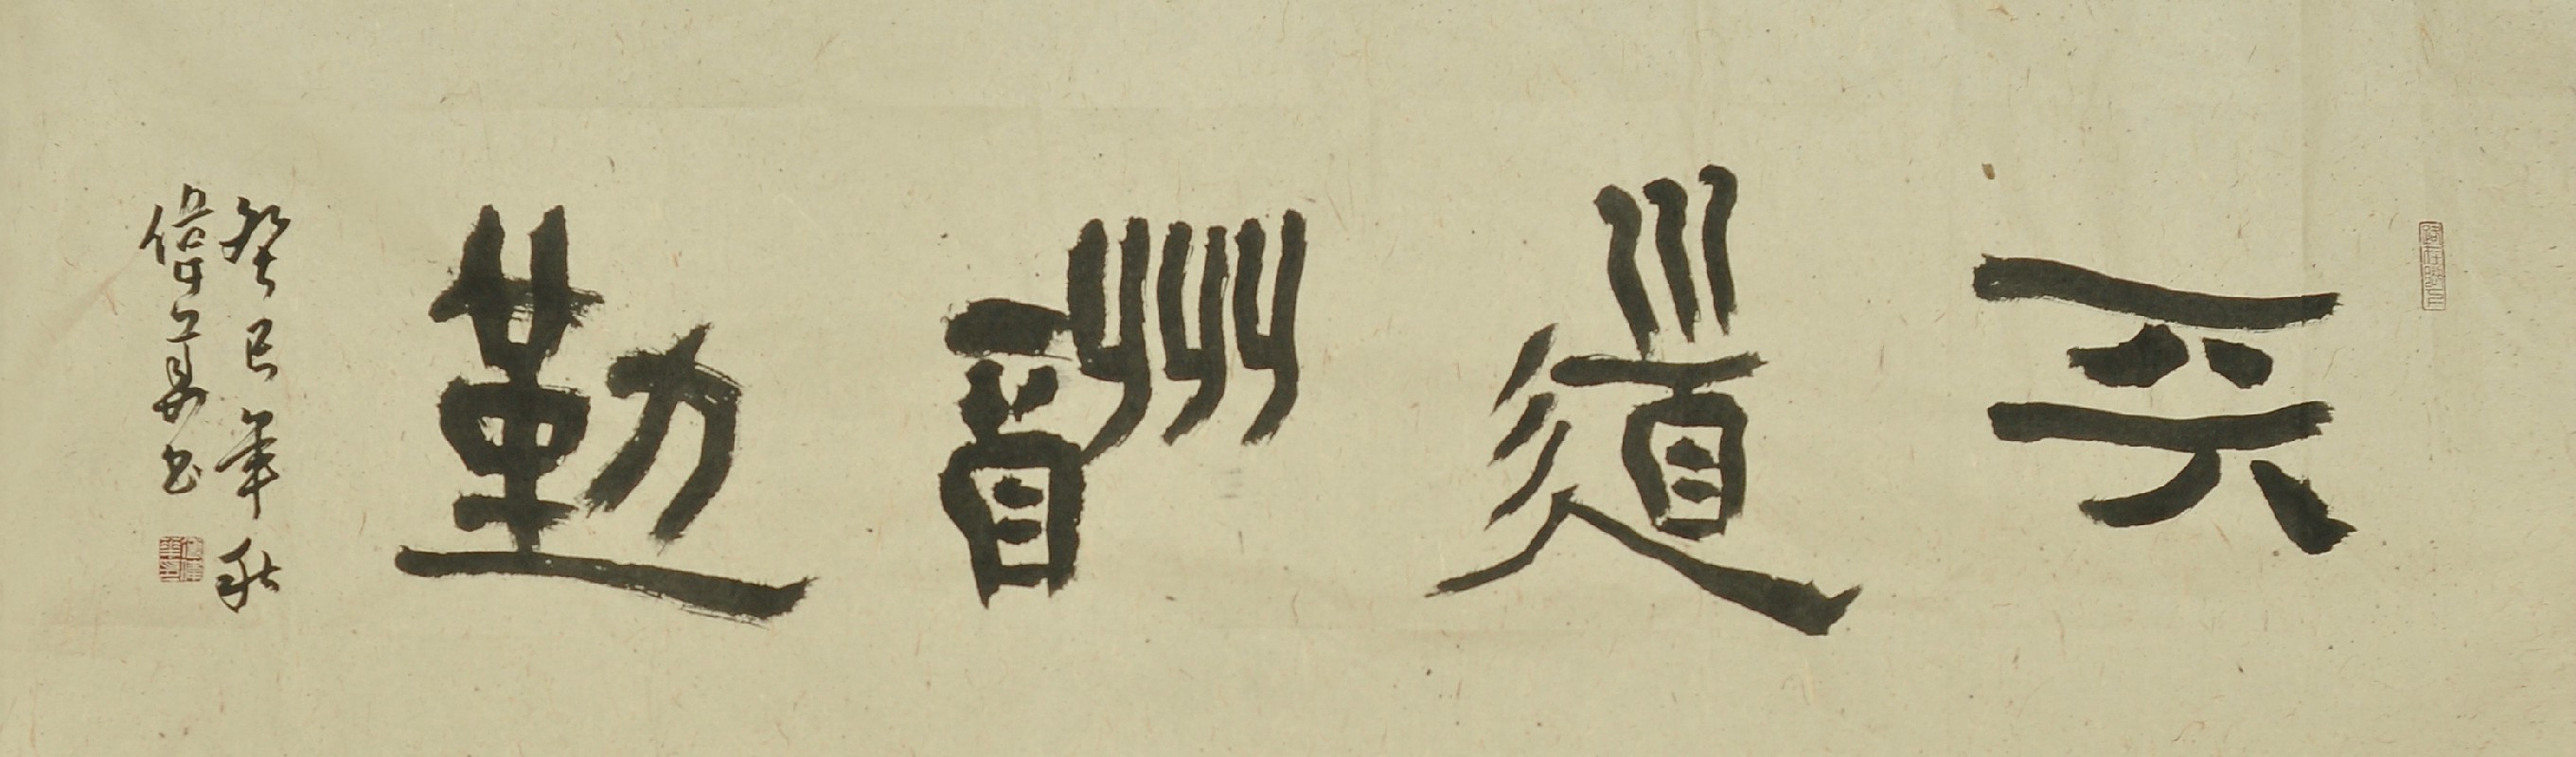 天道酬勤
癸巳年秋
偉華書